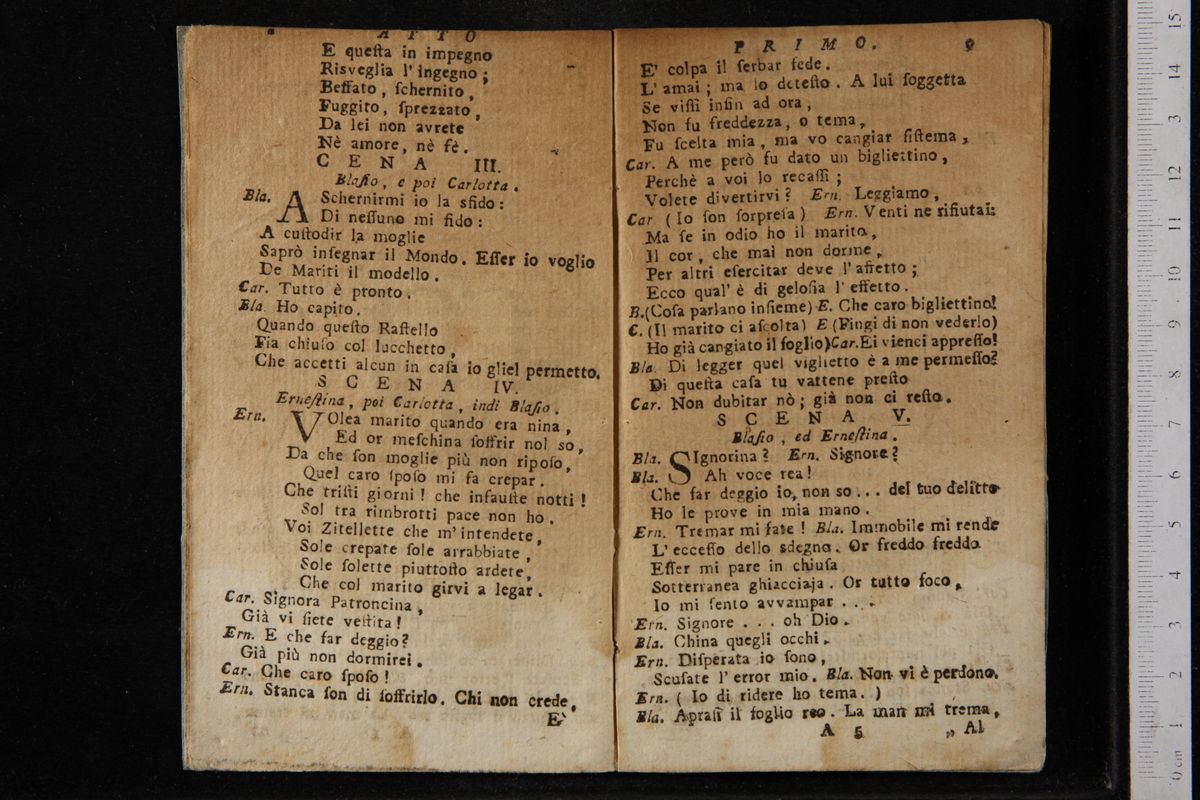 ATTO
E queſta in impegno
Riſveglia l'ingegno;
Beffato, ſchernito,
Fuggito, ſprezzato,
Da lei non avrete
Nè amore, nè fè.
CENA III.
Blaſio, e poi Carlotta.
Bla. A Schernirmi io la sfido:
Di neſſuno mi fido:
A cuſtodir la moglie
Saprò inſegnar il Mondo. Eſſer io voglio
De Mariti il modello.
Car. Tutto è pronto.
Bla. Ho capito.
Quando queſto Raſtello
Fia chiuſo col lucchetto,
Che accetti alcun in caſa io gliel permetto.
SCENA IV.
Erneſtina, poi Carlotta, indi Blaſio.
Ern. VOlea marito quando era nina,
Ed or meſchina ſoffrir nol so,
Da che ſon moglie più non ripoſo,
Quel caro ſpoſo mi fa crepar.
Che triſti giorni! che infauſte notti!
Sol tra rimbrotti pace non ho.
Voi Zitellette che m'intendete,
Sole crepate ſole arrabbiate,
Sole ſolette piuttoſto ardete,
Che col marito girvi a legar.
Car. Signora Patroncina,
Già vi ſiete veſtita!
Ern. E che far deggio?
Già più non dormirei.
Car. Che caro ſpoſo!
Ern. Stanca ſon di ſoffrirlo. Chi non crede,
E'
PRIMO. 9
E' colpa il ſerbar fede.
L'amai; ma lo deteſto. A lui ſoggetta
Se viſſi inſin ad ora,
Non fu freddezza, o tema,
Fu ſcelta mia, ma vo cangiar ſiſtema,
Car. A me però fu dato un bigliettino,
Perchè a voi lo recaſſi;
Volete divertirvi? Ern. Leggiamo,
Car (Io ſon ſorpreſa) Ern. Venti ne rifiutai:
Ma ſe in odio ho il marito,
Il cor, che mai non dorme,
Per altri eſercitar deve l'affetto;
Ecco qual' è di geloſia l'effetto.
B. (Coſa parlano inſieme) E. Che caro bigliettino!
C. (Il marito ci aſcolta) E (Fingi di non vederlo)
Ho già cangiato il foglio) Car. Ei vienci appreſſo!
Bla. Di legger quel viglietto è a me permeſſo?
Di queſta caſa tu vattene preſto
Car. Non dubitar nò; già non ci reſto.
SCENA V.
Blaſio, ed Erneſtina.
Bla. SIgnorina? Ern. Signore?
Bla. Ah voce rea!
Che far deggio io, non so... del tuo delitto
Ho le prove in mia mano.
Ern. Tremar mi fate! Bla. Immobile mi rende
L'ecceſſo dello sdegno. Or freddo freddo
Eſſer mi pare in chiuſa
Sotterranea ghiacciaja. Or tutto foco,
Io mi ſento avvampar...
Ern. Signore... oh Dio.
Bla. China quegli occhi.
Ern. Diſperata io ſono,
Scuſate l'error mio. Bla. Non vi è perdono.
Ern. (Io di ridere ho tema.)
Bla. Apraſi il foglio reo. La man mi trema,
A 5 „ Al
15
14
13
12
11
10
9
8
7
6
5
4
3
2
1
0 cm